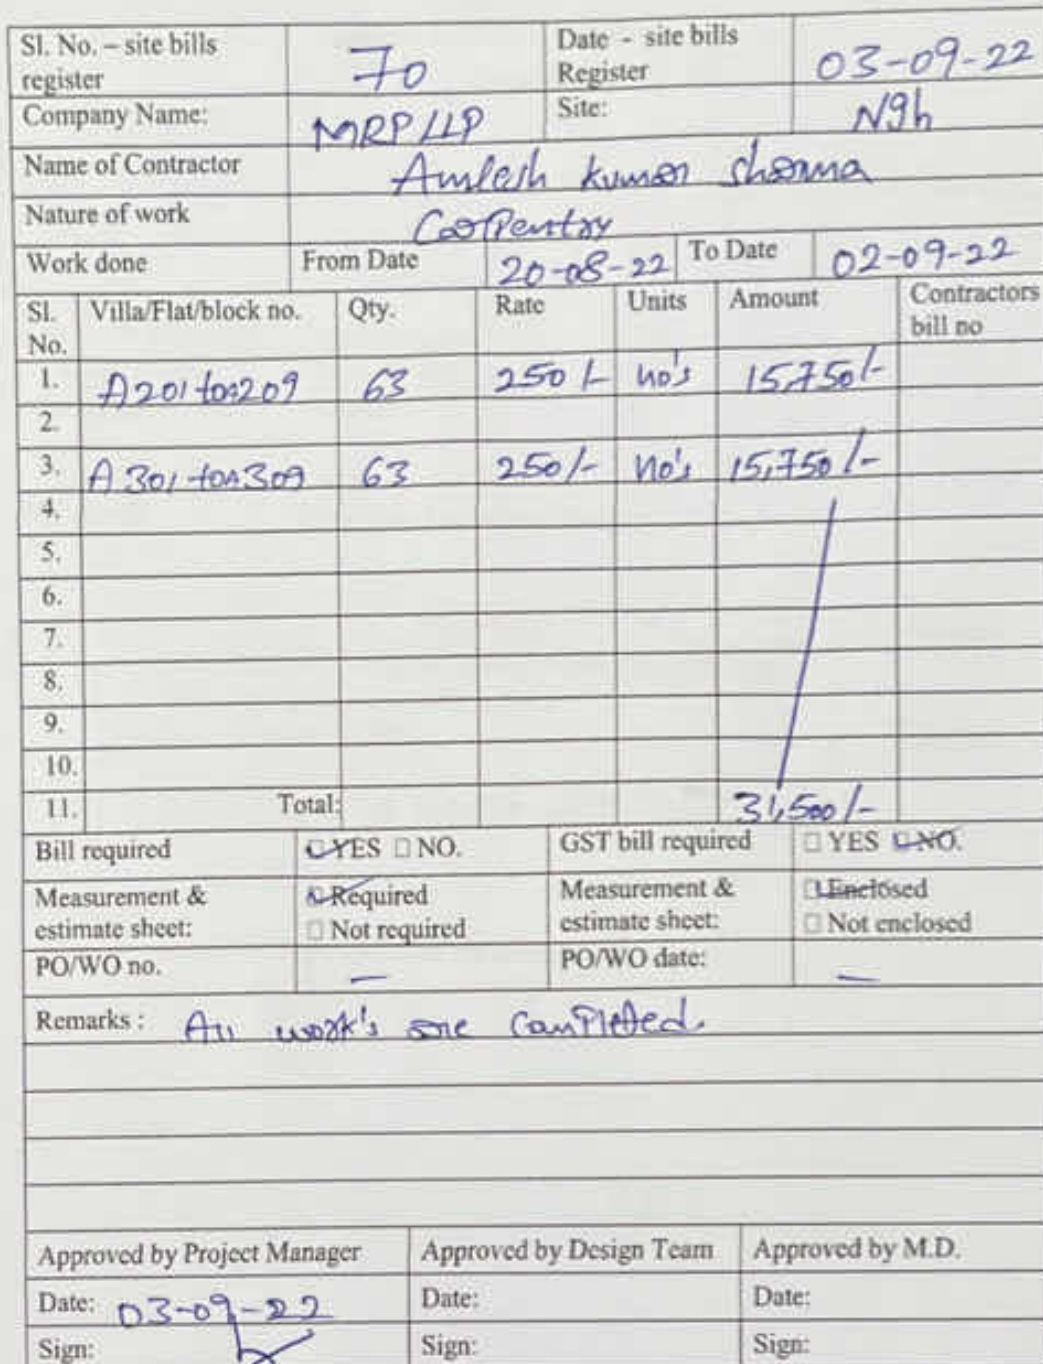 Sl. No. – site bills register 70 Date - site bills Register 03-09-22
Company Name: MRPLLP Site: NGh
Name of Contractor Amlesh kumar sharma
Nature of work Carpentry
Work done From Date 20-08-22 To Date 02-09-22
Sl. No. Villa/Flat/block no. Qty. Rate Units Amount Contractors bill no
1. A201 to A209 63 250/- no's 15,750/-
2.
3. A301 to A309 63 250/- no's 15,750/-
4.
5.
6.
7.
8.
9.
10.
11. Total: 31,500/-
Bill required YES NO. GST bill required YES NO.
Measurement & estimate sheet: Required Not required Measurement & estimate sheet: Enclosed Not enclosed
PO/WO no. — PO/WO date: —
Remarks : All work's are Completed.
Approved by Project Manager Approved by Design Team Approved by M.D.
Date: 03-09-22 Date: Date:
Sign: Sign: Sign: